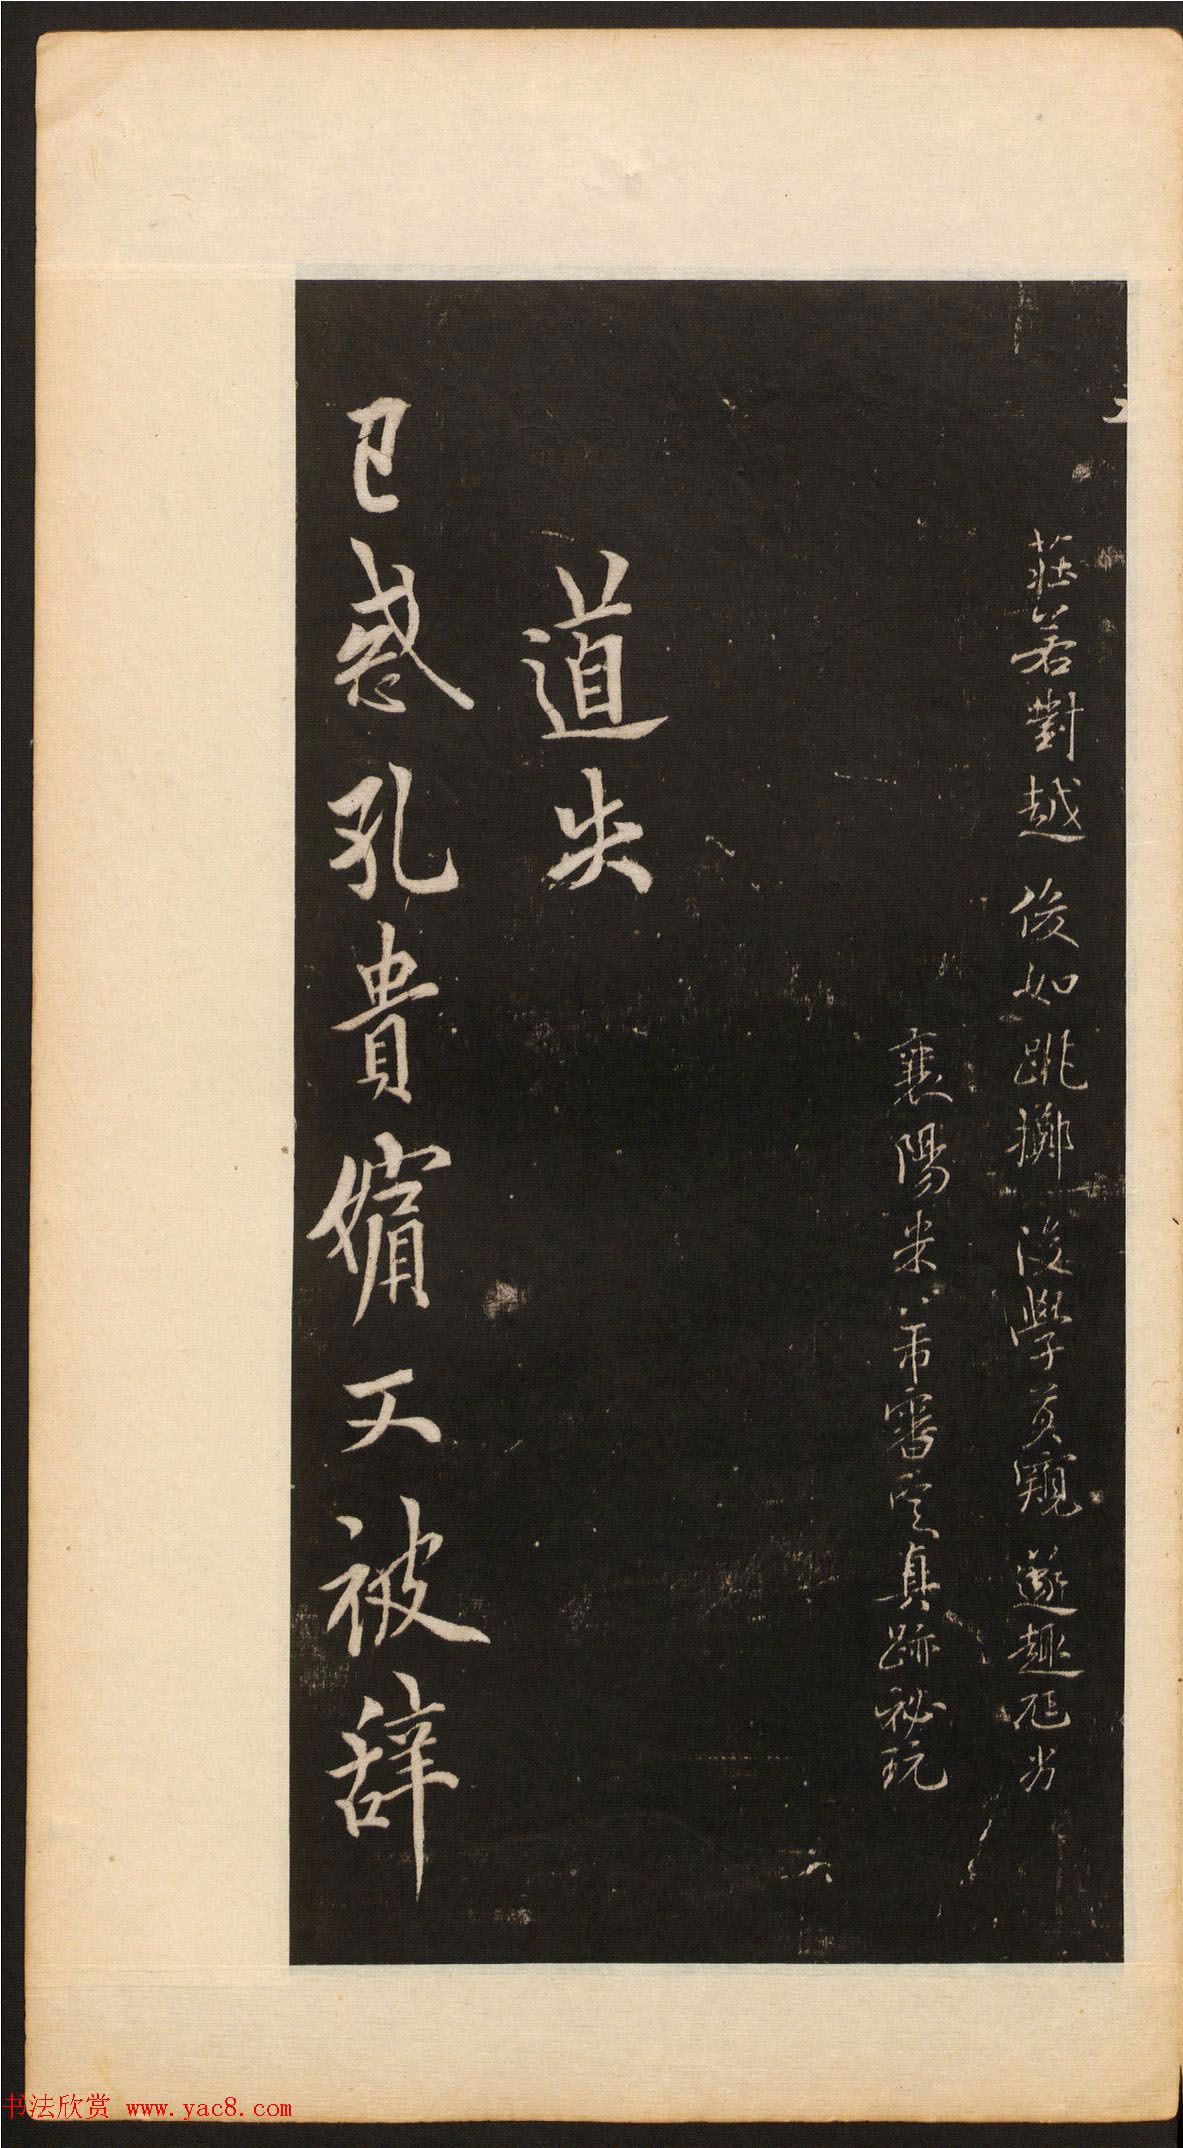 莊若對越俊如跳擲後學莫窺遂趣尪劣
襄陽米芾審定真跡祕玩
道失
已惑孔貴嬪又被辞
书法欣赏 www.yac8.com